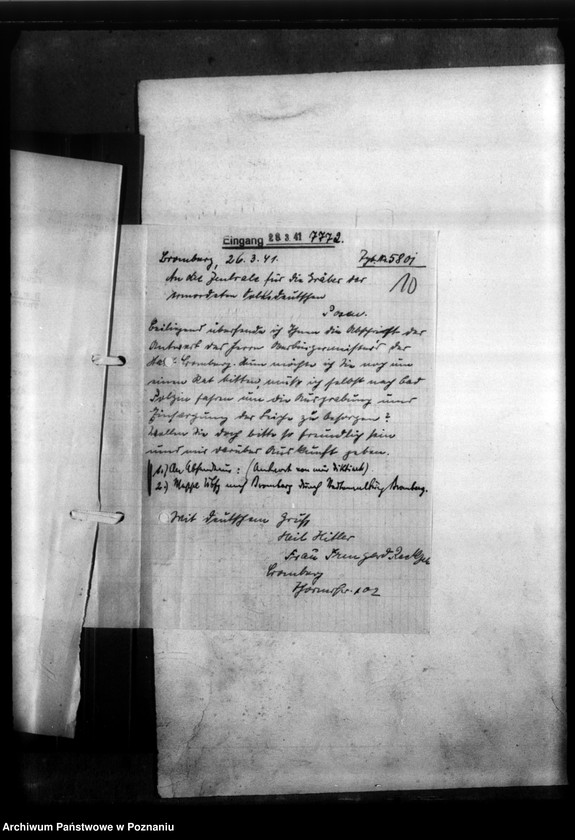 Eingang 28.3.41 7772.
Bromberg, 26.3.41.
10
An die Zentrale für die Gräber der
ermordeten Volksdeutschen
Posen.
Beiliegend übersende ich Ihnen die Abschrift der
Antwort des Herrn Oberbürgermeisters der
Bromberg. Nun möchte ich Sie noch um
einen Rat bitten, muß ich selbst nach Bad
Polzin fahren um die Ausgrabung und
Einsargung der Leiche zu besorgen?
Wollen Sie doch bitte so freundlich sein
und mir darüber Auskunft geben.
1.) An Absenderin: (Antwort von mir diktiert)
2.) nach Bromberg durch Stadtverwaltung Bromberg.
Mit deutschem Gruß
Heil Hitler
Frau Irmgard
Bromberg
Thornerstr. 102
Archiwum Państwowe w Poznaniu